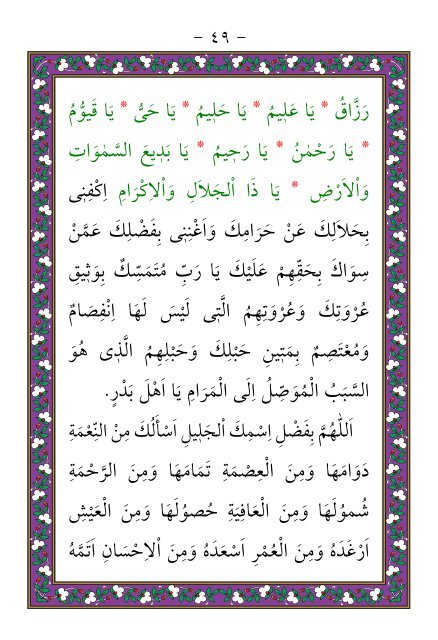 – ٤٩ –
رَزَّاقُ * يَا عَلِيمُ * يَا حَلِيمُ * يَا حَىُّ * يَا قَيُّومُ
* يَا رَحْمٰنُ * يَا رَحِيمُ * يَا بَدِيعَ السَّمٰوَاتِ
وَاْلاَرْضِ * يَا ذَا اْلجَلاَلِ وَاْلاِكْرَامِ اِكْفِنِى
بِحَلاَلِكَ عَنْ حَرَامِكَ وَاَغْنِنِى بِفَضْلِكَ عَمَّنْ
سِوَاكَ بِحَقِّهِمْ عَلَيْكَ يَا رَبِّ مُتَمَسِّكٌ بِوَثِيقِ
عُرْوَتِكَ وَعُرْوَتِهِمُ الَّتِى لَيْسَ لَهَا اِنْفِصَامٌ
وَمُعْتَصِمٌ بِمَتِينِ حَبْلِكَ وَحَبْلِهِمُ الَّذِى هُوَ
السَّبَبُ الْمُوَصِّلُ اِلَى الْمَرَامِ يَا اَهْلَ بَدْرٍ.
اَللّٰهُمَّ بِفَضْلِ اِسْمِكَ اْلجَلِيلِ اَسْأَلُكَ مِنْ النِّعْمَةِ
دَوَامَهَا وَمِنَ الْعِصْمَةِ تَمَامَهَا وَمِنَ الرَّحْمَةِ
شُمُولَهَا وَمِنَ الْعَافِيَةِ حُصُولَهَا وَمِنَ الْعَيْشِ
اَرْغَدَهُ وَمِنَ الْعُمْرِ اَسْعَدَهُ وَمِنَ اْلاِحْسَانِ اَتَمَّهُ